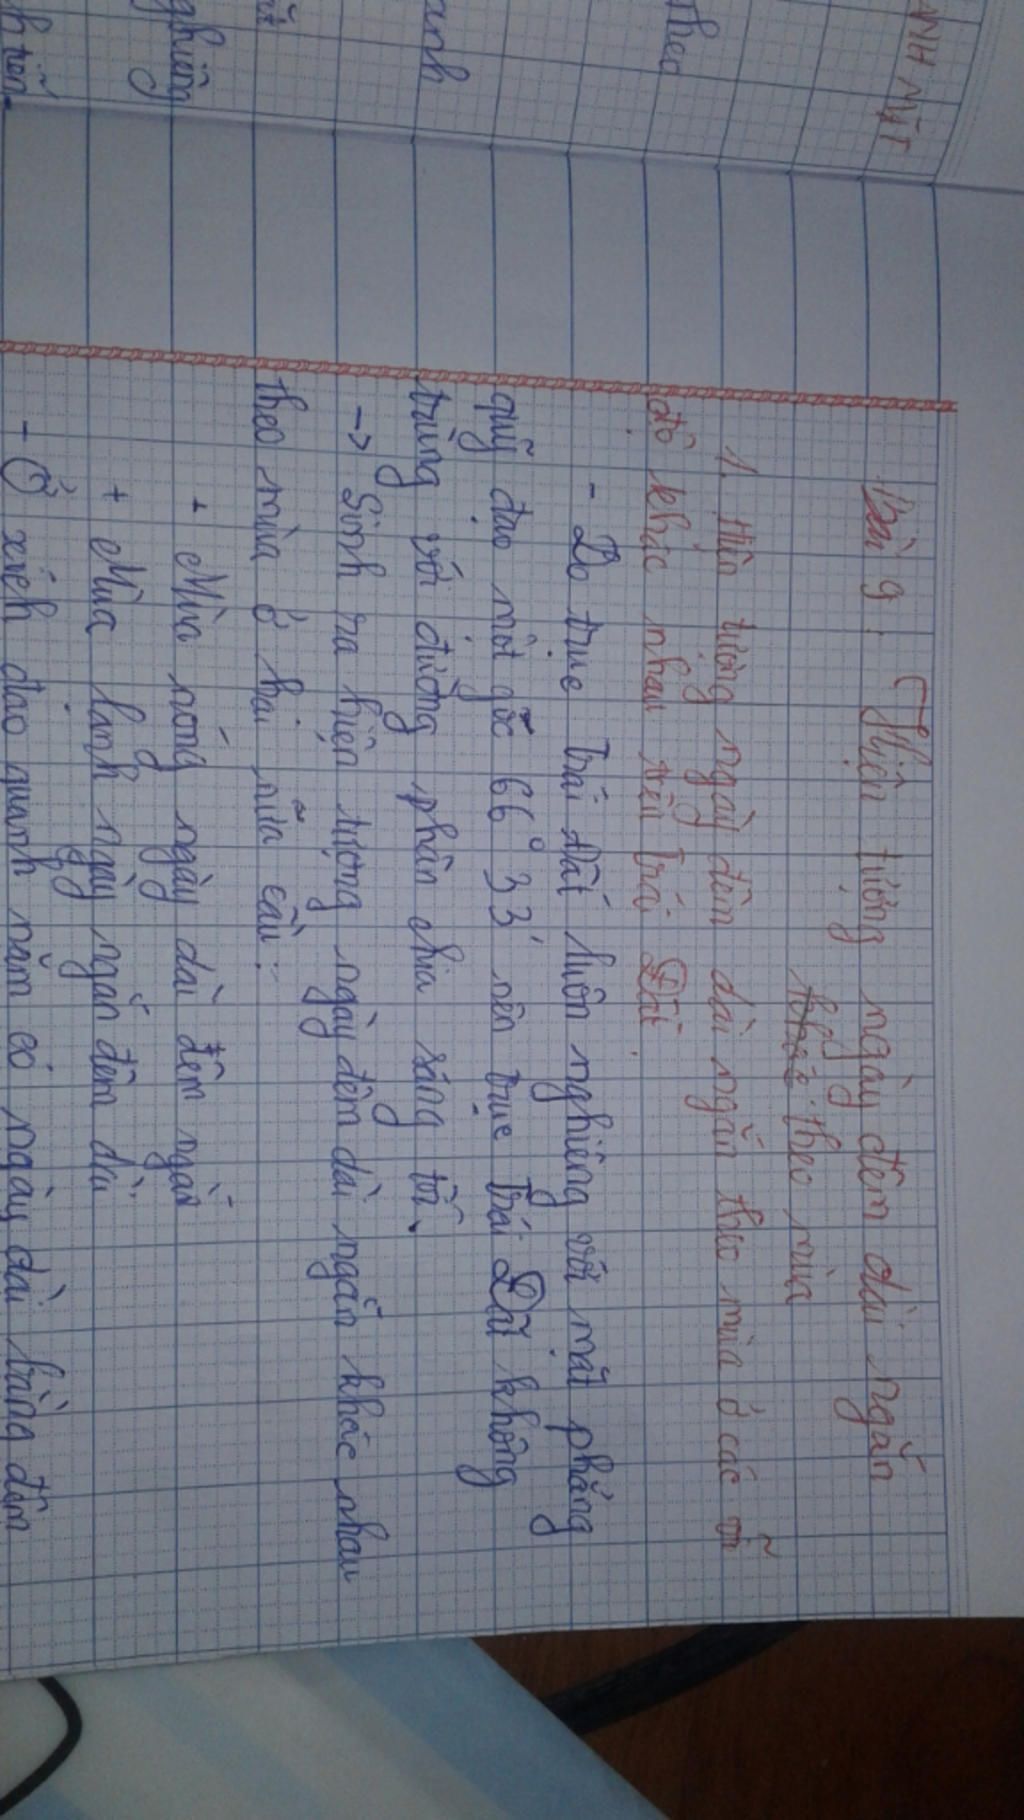 ANH MẶT
theo
anh
nghiêng
Bài 9: Hiện tượng ngày đêm dài ngắn
theo mùa
1. Hiện tượng ngày đêm dài ngắn theo mùa ở các vĩ
độ khác nhau trên Trái Đất
- Do trục Trái Đất luôn nghiêng với mặt phẳng
quỹ đạo một góc 66° 33' nên trục Trái Đất không
trùng với đường phân chia sáng tối.
-> Sinh ra hiện tượng ngày đêm dài ngắn khác nhau
theo mùa ở hai nửa cầu:
+ Mùa nóng ngày dài đêm ngắn
+ Mùa lạnh ngày ngắn đêm dài
- Ở xích đạo quanh năm có ngày dài bằng đêm